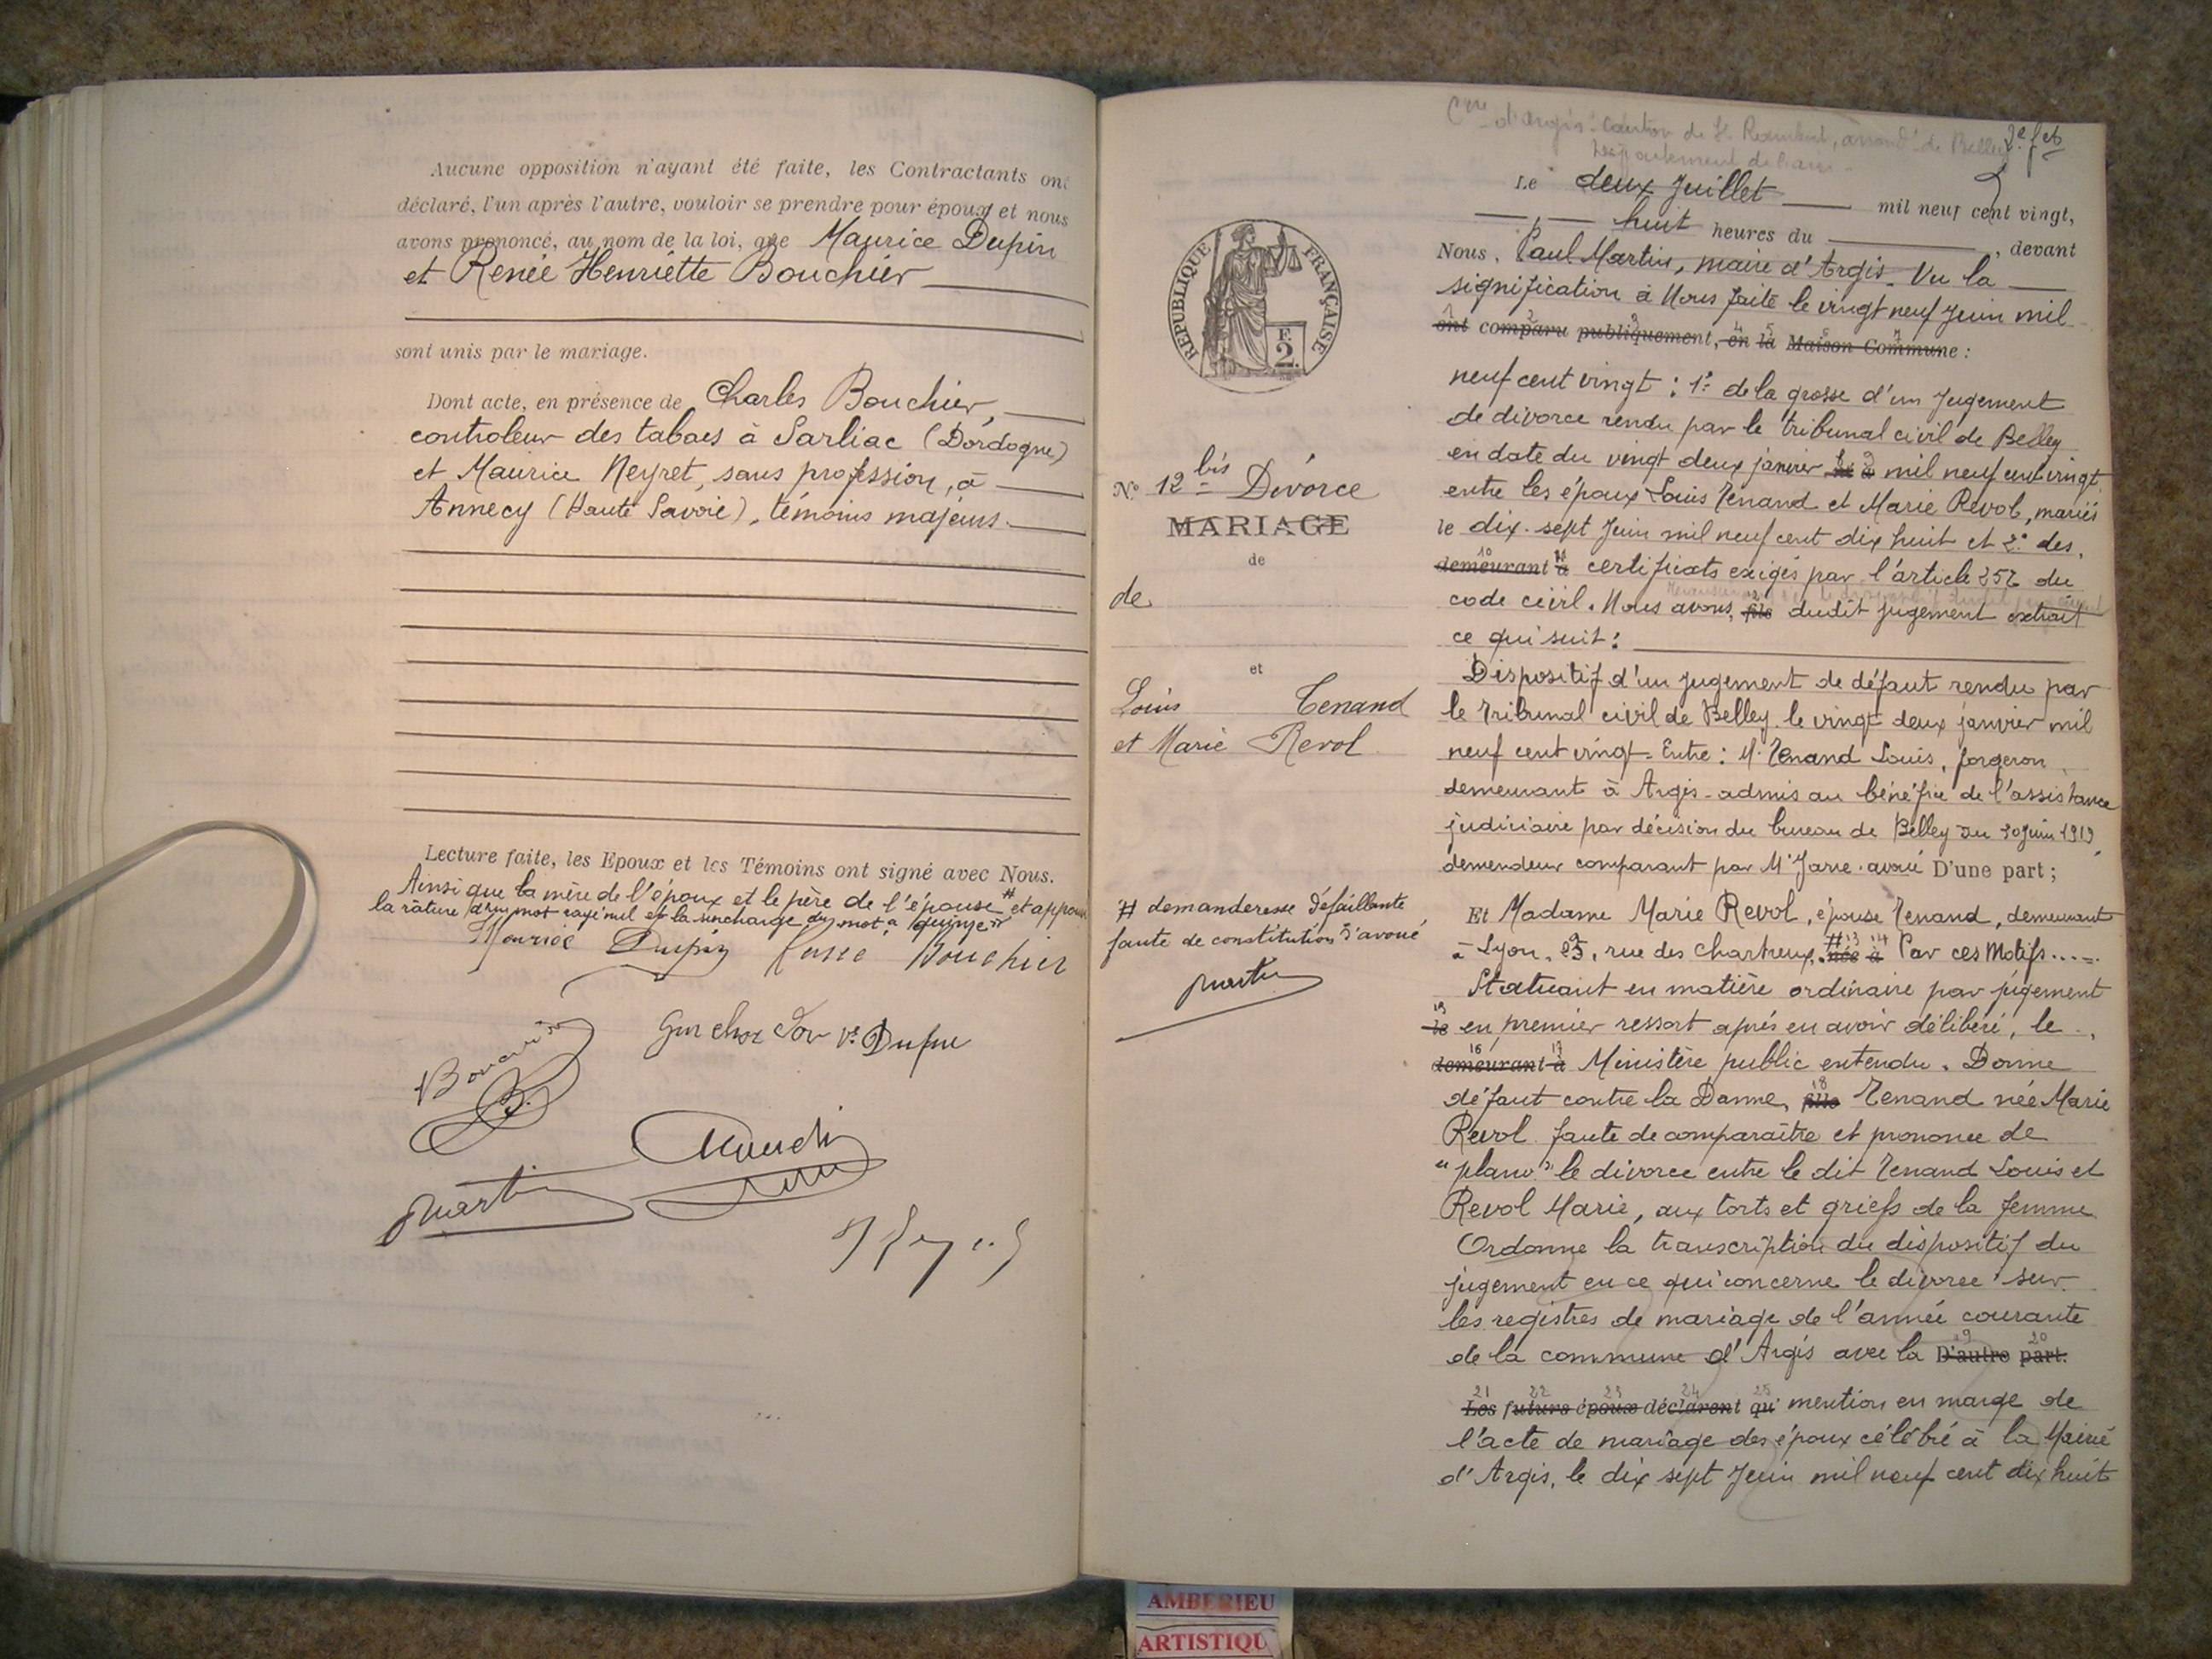 Aucune opposition n'ayant été faite, les Contractants ont
déclaré, l'un après l'autre, vouloir se prendre pour époux et nous
avons prononcé, au nom de la loi, que Maurice Dupin
et Renée Henriette Bouchier
sont unis par le mariage.
Dont acte, en présence de Charles Bouchier,
controleur des tabacs à Sarliac (Dordogne)
et Maurice Neyret, sans profession, à
Annecy (Haute Savoie), témoins majeurs.
Lecture faite, les Epoux et les Témoins ont signé avec Nous.
Ainsi que la mère de l'époux et le père de l'épouse # et approuvé
la râture d'un mot rayé nul et la surcharge du mot "quinze"
Maurice Dupin Bouchier
Vve Dupin
Martin
Cne d'Argis canton de St Rambert, arrond' de Belley 2e fet
Département de l'Ain
Le deux Juillet mil neuf cent vingt,
huit heures du , devant
Nous, Paul Martin, maire d'Argis. Vu la
signification à Nous faite le vingt neuf Juin mil
1 2 3 4 5 6 7
ont comparu publiquement, en la Maison Commune :
neuf cent vingt : 1° de la grosse d'un jugement
de divorce rendu par le tribunal civil de Belley
en date du vingt deux janvier mil neuf cent vingt
entre les époux Louis Tenand et Marie Revol, mariés
le dix-sept Juin mil neuf cent dix huit et 2° des
demeurant à certificats exigés par l'article 252 du
code civil. Nous avons, fils dudit jugement extrait
ce qui suit :
Dispositif d'un jugement de défaut rendu par
le Tribunal civil de Belley le vingt deux janvier mil
neuf cent vingt - Entre : M. Tenand Louis, forgeron
demeurant à Argis - admis au bénéfice de l'assistance
judiciaire par décision du bureau de Belley du 30 juin 1919
demendeur comparant par Me Jarre avoué D'une part ;
Et Madame Marie Revol, épouse Tenand, demeurant
à Lyon, 25, rue des Chartreux, # née à Par ces Motifs....
Statuant en matière ordinaire par jugement
le en premier ressort après en avoir délibéré, le
demeurant à Ministère public entendu. Donne
défaut contre la Damne, fille Tenand née Marie
Revol faute de comparaître et prononce de
"plano" le divorce entre le dit Tenand Louis et
Revol Marie, aux torts et griefs de la femme
Ordonne la transcription du dispositif du
jugement en ce qui concerne le divorce sur
les registres de mariage de l'année courante
de la commune d'Argis avec la D'autre part.
21 22 23 24 25
Les futurs époux déclarent qu' mention en marge de
l'acte de mariage des époux célébré à la Mairie
d'Argis, le dix sept Juin mil neuf cent dix huit
RÉPUBLIQUE FRANÇAISE
F.
2.
No 12 bis Divorce
MARIAGE
de
de
et
Louis Tenand
et Marie Revol
# demanderesse défaillante
faute de constitution d'avoué
Martin
AMBERIEU
ARTISTIQU